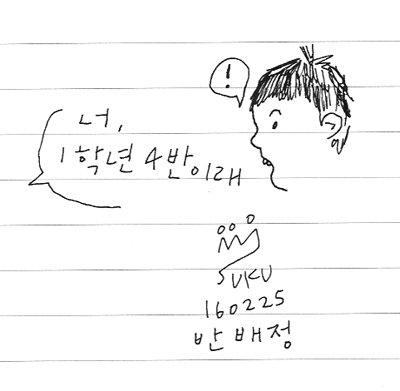 !
너,
1학년 4반이래
SUKU
160225
반 배정